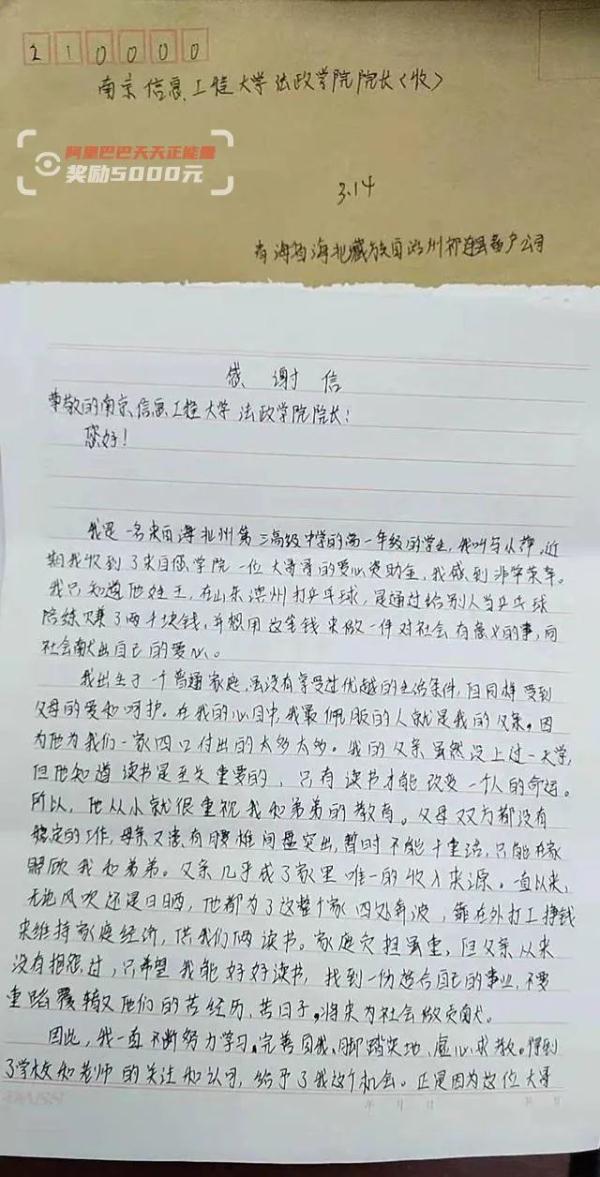 210000
南京信息工程大学法政学院院长（收）
阿里巴巴天天正能量
奖励5000元
3.14
青海省海北藏族自治州祁连县畜产公司
感谢信
尊敬的南京信息工程大学法政学院院长：
您好！
我是一名来自海北州第三高级中学的高一年级的学生，我叫马小萍，近
期我收到了来自您学院一位大哥哥的爱心资助金，我感到非常荣幸。
我只知道他姓王，在山东滨州打乒乓球，是通过给别人当乒乓球
陪练赚了两千块钱，并想用这笔钱来做一件对社会有意义的事，向
社会献出自己的爱心。
我出生于一个普通家庭，虽没有享受过优越的生活条件，但同样受到
父母的爱和呵护。在我的心目中，我最佩服的人就是我的父亲。因
为他为我们一家四口付出的太多太多。我的父亲虽然没上过一天学，
但他知道读书是至关重要的，只有读书才能改变一个人的命运。
所以，他从小就很重视我和弟弟的教育。父母双方都没有
稳定的工作，母亲又患有腰椎间盘突出，暂时不能干重活，只能在家
照顾我和弟弟。父亲几乎成了家里唯一的收入来源。一直以来，
无论风吹还是日晒，他都为了这整个家四处奔波，靠在外打工挣钱
来维持家庭经济，供我们俩读书。家庭负担虽重，但父亲从来
没有抱怨过，只希望我能好好读书，找到一份适合自己的事业，不要
重蹈覆辙又他们的苦经历、苦日子，将来为社会做贡献。
因此，我一直不断努力学习，完善自我、脚踏实地、虚心求教。得到
了学校和老师的关注和认可，给予了我这个机会。正是因为这位大哥
年 月 日